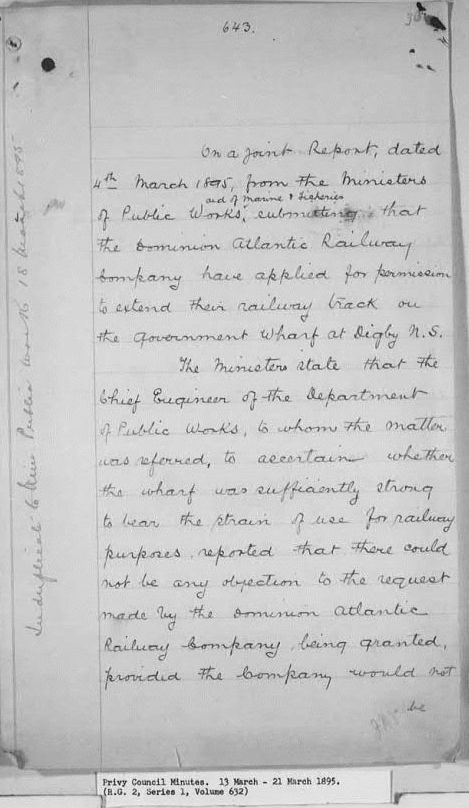 643.
On a Joint Report, dated
4th March 1895, from the Ministers
and of Marine & Fisheries
of Public Works, submitting that
the Dominion Atlantic Railway
Company have applied for permission
to extend their railway track on
the Government Wharf at Digby N.S.
The Ministers state that the
Chief Engineer of the Department
of Public Works, to whom the matter
was referred, to ascertain whether
the wharf was sufficiently strong
to bear the strain of use for railway
purposes, reported that there could
not be any objection to the request
made by the Dominion Atlantic
Railway Company, being granted,
provided the Company would not
be
In duplicate to Min Public Works 18 March 1895
Privy Council Minutes. 13 March - 21 March 1895.
(R.G. 2, Series 1, Volume 632)